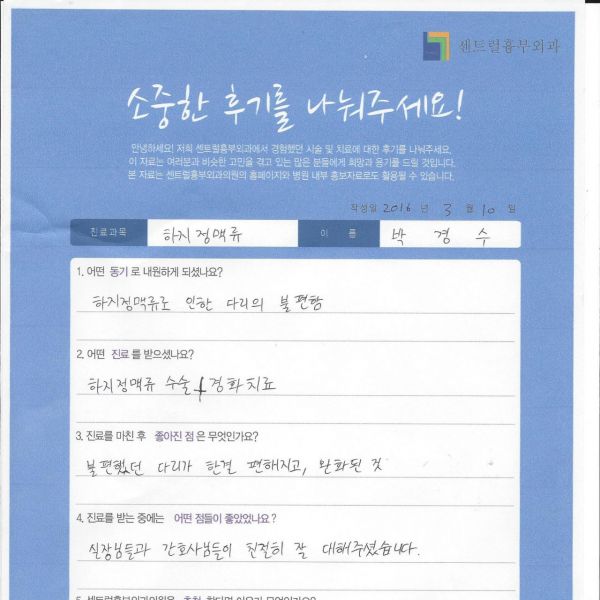 센트럴흉부외과
소중한 후기를 나눠주세요!
안녕하세요! 저희 센트럴흉부외과에서 경험했던 시술 및 치료에 대한 후기를 나눠주세요.
이 자료는 여러분과 비슷한 고민을 겪고 있는 많은 분들에게 희망과 용기를 드릴 것입니다.
본 자료는 센트럴흉부외과의원의 홈페이지와 병원 내부 홍보자료로도 활용될 수 있습니다.
작성일 2016 년 3 월 10 일
진료과목 하지정맥류 이 름 박 경 수
1. 어떤 동기 로 내원하게 되셨나요?
하지정맥류로 인한 다리의 불편함
2. 어떤 진료 를 받으셨나요?
하지정맥류 수술 + 경화치료
3. 진료를 마친 후 좋아진 점 은 무엇인가요?
불편했던 다리가 한결 편해지고, 완화된 것
4. 진료를 받는 중에는 어떤 점들이 좋았었나요?
실장님들과 간호사님들이 친절히 잘 대해주셨습니다.